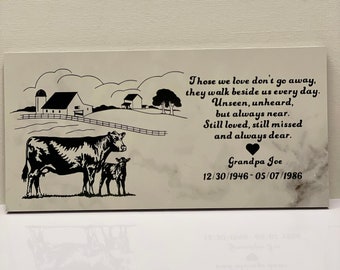 Those we love don't go away,
they walk beside us every day.
Unseen, unheard,
but always near.
Still loved, still missed
and always dear.
Grandpa Joe
12/30/1946 - 05/07/1986